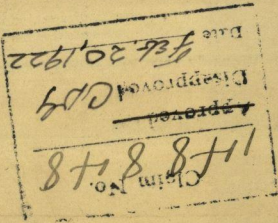 Claim No.
148848
Approved
Disapproved CDY
Date Feb. 20, 1922